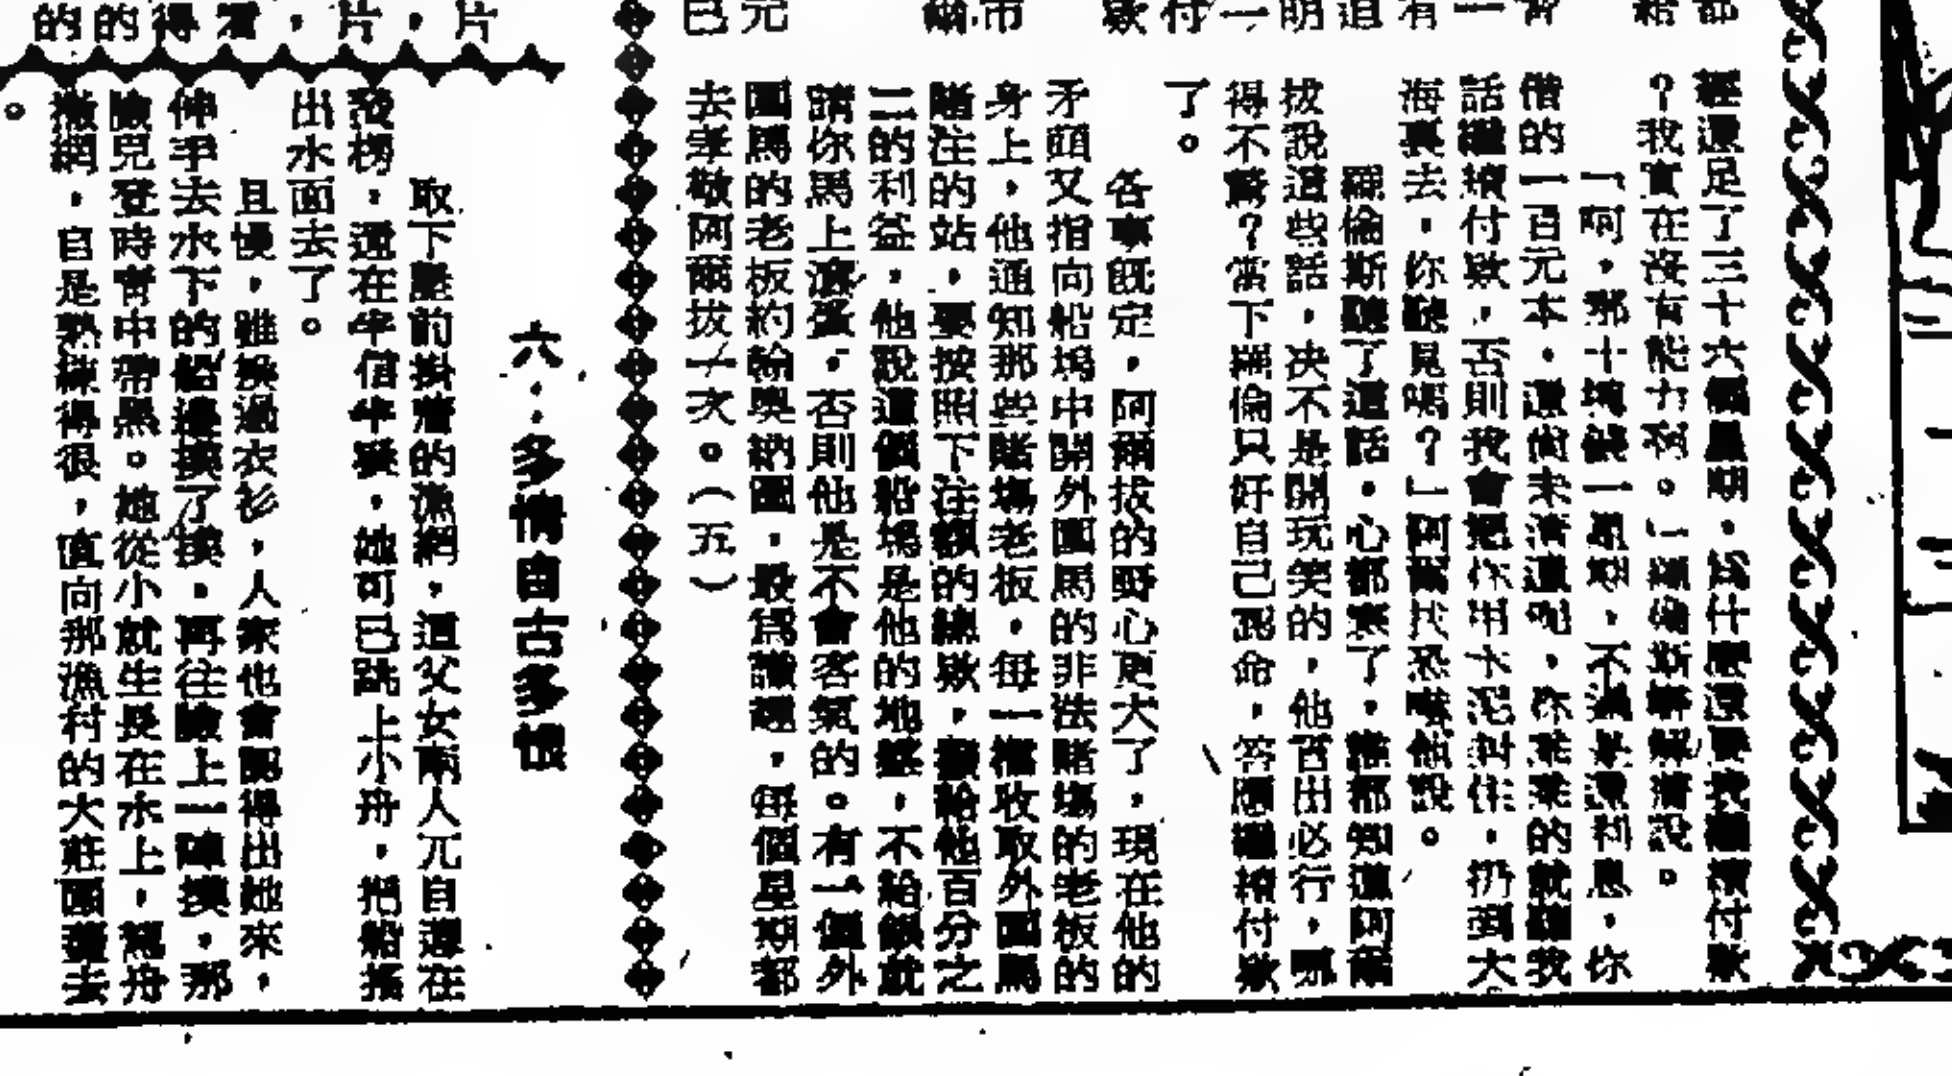 經還足了三十六個星期，爲什麼還要我繼續付欵
？我實在沒有能力了。」羅倫斯解釋着說。
「呵，那十塊錢一星期，不過是還利息，你
借的一百元本，還尚未清還呢，你乖乖的就聽我
話繼續付欵，否則我會把你用水泥封住，扔到大
海裏去，你聽見嗎？」阿爾拔恐嚇他說。
羅倫斯聽了這話，心都寒了，誰都知道阿爾
拔說這些話，决不是開玩笑的，他言出必行，那
得不驚？當下羅倫只好自己認命，答應繼續付欵
了。
各事旣定，阿爾拔的野心更大了，現在他的
矛頭又指向船塢中開外圍馬的非法賭塲的老板的
身上，他通知那些賭塲老板，每一檔收取外圍馬
賭注的站，要按照下注額的總欵，繳給他百分之
二的利益，他說這個船塢是他的地盤，不給錢就
請你馬上滾蛋，否則他是不會客氣的。有一個外
圍馬的老板約翰奧納圖，最爲識趣，每個星期都
去孝敬阿爾拔一次。（五）
六‧‧多情自古多恨
取下壁前掛着的漁網，這父女兩人兀自還在
發楞，還在半信半疑，她可已跳上小舟，把船搖
出水面去了。
且慢，雖換過衣衫，人家也會認得出她來，
伸手去水下的船邊摸了摸，再往臉上一陣摸，那
臉兒登時青中帶黑。她從小就生長在水上，駕舟
撒網，自是熟練得很，直向那漁村的大莊園灣去
。